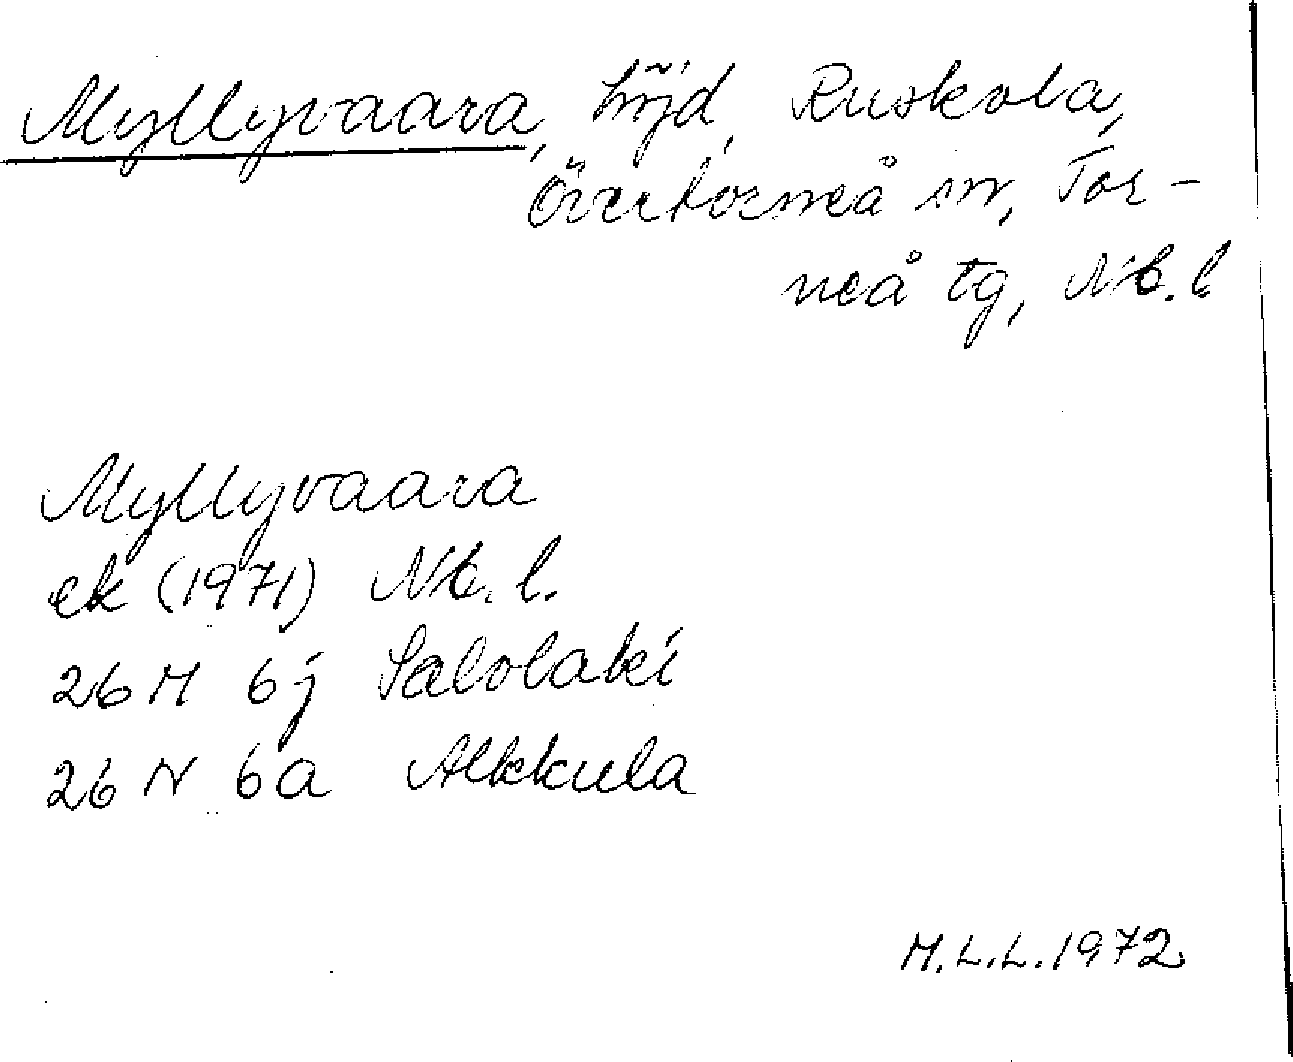 Myllyvaara, höjd, Ruskola,
Övertorneå sn, Tor-
neå tg, Nb. l
Myllyvaara
ek (1971) Nb. l.
26 M 6j Salolaki
26 N 6a Alkkula
M.L.L. 1972